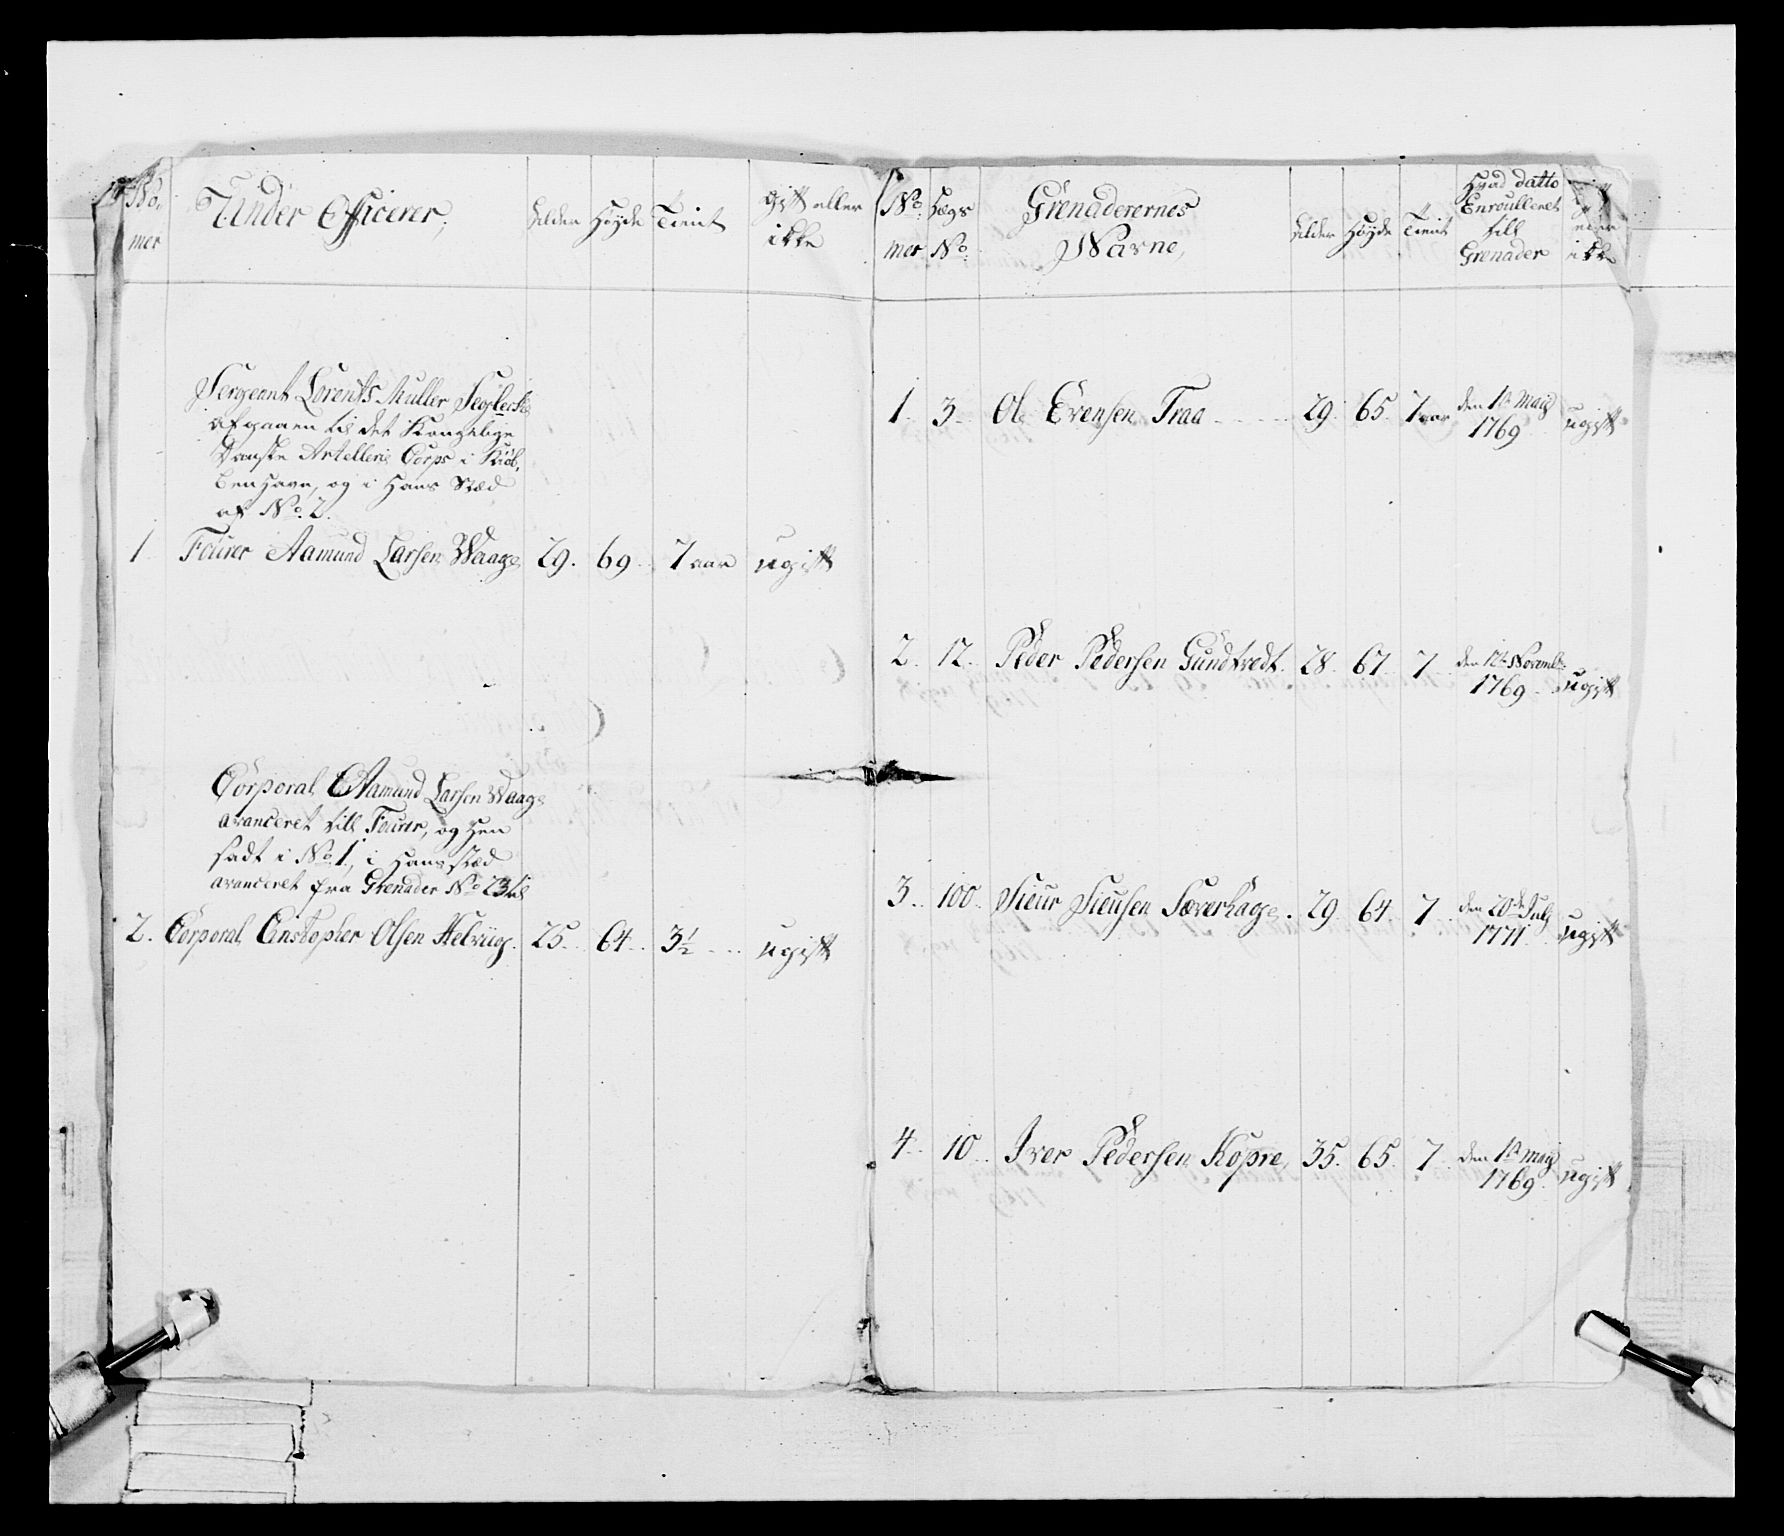 No.
mer
Under Officerer,
Alder
Høyde
Tient
Gift eller
ikke
Sergeant Lorents Muller
Afgaaen til det Kongelige
Danske Artellerie Corps i Kiøb,
benHavn, og i Hans Stæd
af No. 2.
1 Fourer Aamund Larsen Waage 29. 69 7 aar ugift
Corporal Aamund Larsen Waage
avanceret till Fourer, og Hen
sadt i No. 1, i Hans stæd
avanceret fra Grenader No 23 til
2. Corporal Christopher Olsen Helviig. 25. 64 3½ ugift
No. mer
Lægs No.
Grenaderernes
Navne,
Alder
Høyde
Tient
Hvad datto
Enroulleret
till
Grenader
eller
ikke
1. 3 Ole Evensen Traa 29. 65. 7 aar den 1te Maij
1769 ugift
2. 12. Peder Pedersen Gundtvedt. 28. 67. 7. den 12te Novemb.
1769 ugift
3. 100. Siur Siursen Sæverhage. 29. 64. 7. den 20de July
1771. ugift
4. 10 Iver Pedersen Kopre, 35. 65. 7. den 1te Maij
1769. ugift